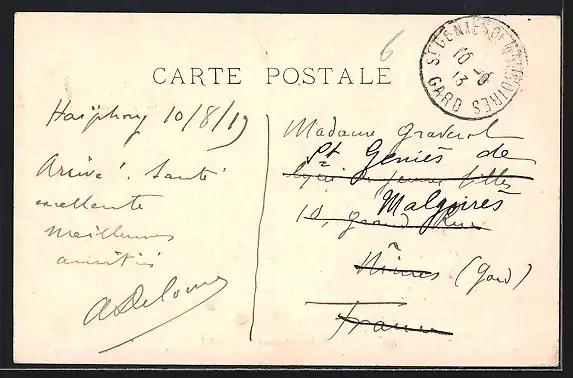 6
CARTE POSTALE
ST GENIES DE MALGOIRES
10 -9
13
GARD
Haïphong 10/8/13
Arrivé. Santé
excellente
Meilleures
amitiés
A Delorme
Madame Graverol
St Geniès de
Lycée de jeunes filles
Malgoirès
10, grand Rue
Nîmes (Gard)
France